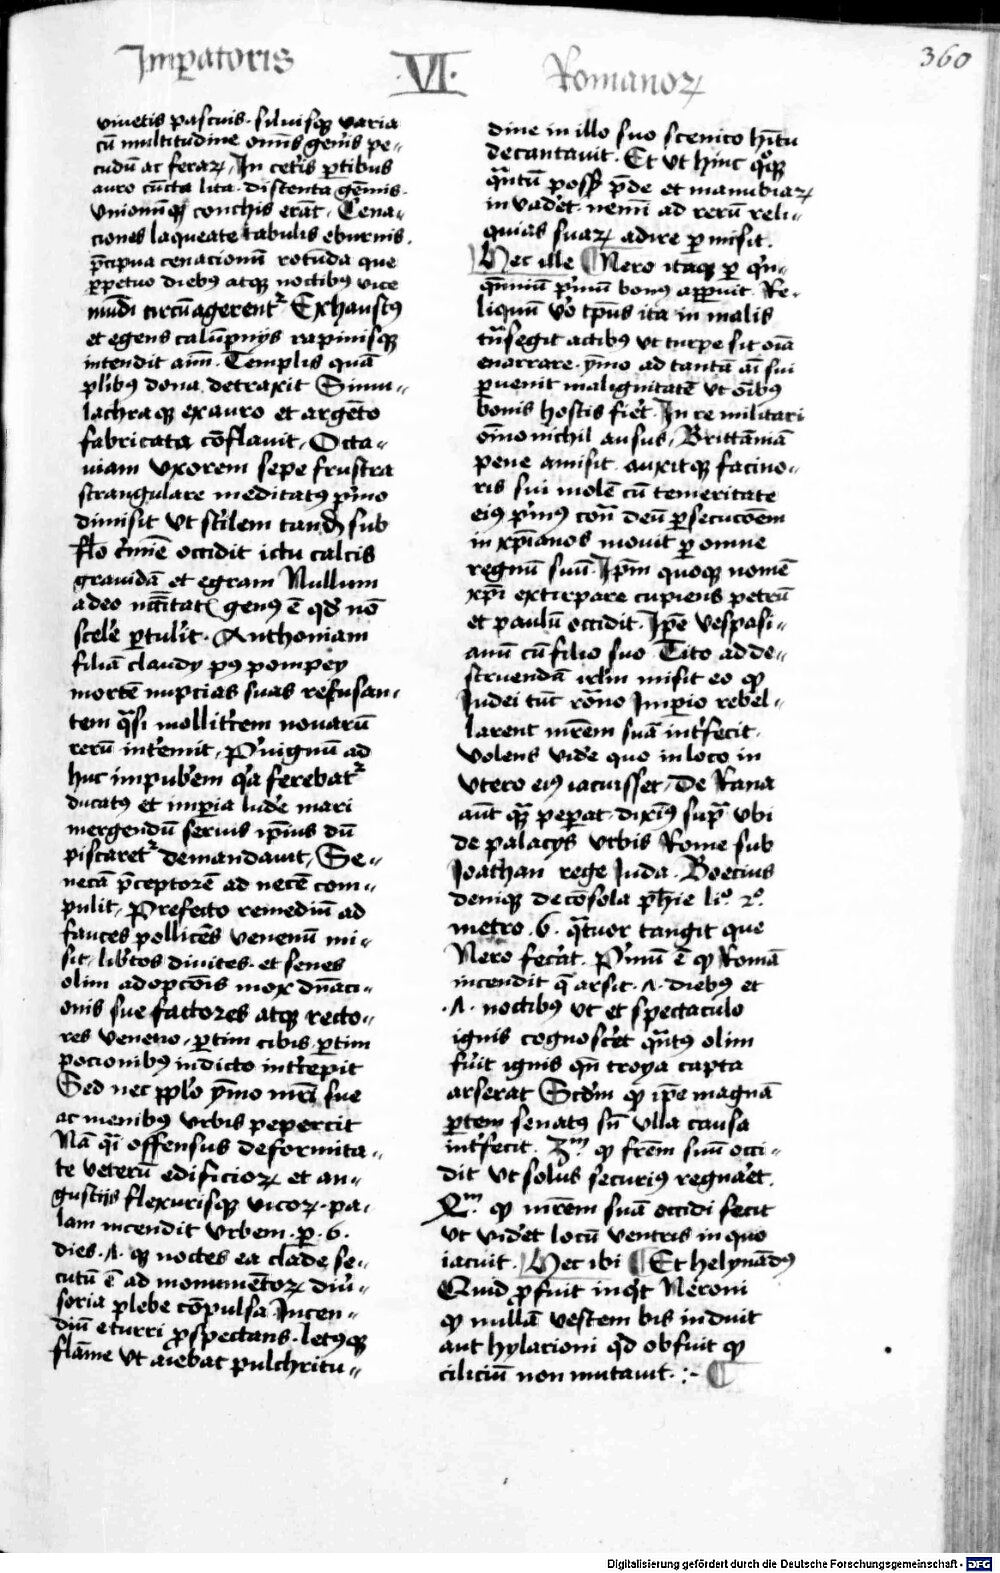 Imꝑatoris
·VI·
Romanoꝝ
360
vinetis pascuis. siluisqꝫ varia
cū multitudine om̄is gen̄is pe-
cudū ac feraꝝ, In cet̄is ꝑtibus
auro cūcta lita. distenta gēmis.
Unionūqꝫ conchis erāt. Cena-
ciones laqueate tabulis eburnis.
p̄cipua cenacionū rotūda que
ꝑpetuo diebꝰ atqꝫ noctibꝰ vice
mūdi circūagerent᷑ Exhaustꝰ
et egens calūpnijs rapinisqꝫ
intendit aīm. Templis quā
pl̄ibꝰ dona detraxit Simu-
lachraqꝫ ex auro et argēto
fabricata cōflauit, Octa-
uiam vxorem sepe frustra
strangulare meditatꝰ p̄mo
dimisit vt st̄ilem tandē sub
fl̄o c̄mīe occidit ictu calcis
grauidā et egram Nullum
adeo nc̄c̄itat genꝰ ē qd̄ nō
scel̄e ꝑtulit. Anthoniam
filiā claudy pꝰ pompey
mortē nupcias suas refusan-
tem q̄si mollit̄rem nouarū
rerū int̄emit, P̄uignū ad
huc impub̄em q̄a ferebat᷑
ducatꝰ et imp̄ia lud̄e mari
mergendū seruis ip̄ius dū
piscaret᷑ demandauit, Se-
necā p̄ceptorē ad necē com-
pulit, Prefecto remediū ad
fauces pollicēs venenū mi-
sit, lib̄tos diuites. et senes
olim adopcōis mox dn̄aci-
onis sue factores atqꝫ recto-
res veneno, ꝑtim cibis. ꝑtim
pocionibꝰ indicto int̄cepit
Sed nec pp̄lo ȳmo mr̄i sue
ac menibꝰ vrbis pepercit
Nā q̄i offensus deformita-
te veterū edificioꝝ et an-
gustijs flexurisqꝫ vicoꝝ. pa-
lam incendit vrbem. ꝑ. 6.
dies. ʌ. qꝫ noctes ea clade se-
cutū ē ad monumētoꝝ diū-
soria plebe cōpulsa. Incen-
diū e turri ꝓspectans. letꝰqꝫ
flāme vt aiebat pulchritu-
dine in illo suo scenico hītu
decantauit. Et vt hinc qꝫ
q̄ntū poss̄ p̄de et manubiaꝝ
in vad̄et. nemī ad rerū reli-
quias suaꝝ adire ꝑmisit.
Hec ille ¶ Nero itaqꝫ ꝑ q̄n-
qn̄niū p̄mū bonꝰ apparuit. Re-
liquū v̄o tp̄us ita in malis
tn̄segit actibꝰ vt turpe sit oīa
enarrare. ȳmo ad tantā aī sui
ꝑuenit malignitatē vt oībꝰ
bonis hostis fiet. In re militari
oīno nichil ausus, Brittāniā
pene amisit. auxitqꝫ facino-
ris sui molē cū temeritate
eiꝰ p̄mꝰ contͣ deū ꝑsecucōem
in xp̄ianos mouit ꝑ omne
regnū suū. Ip̄m quoqꝫ nomē
xp̄i extirpare cupiens petrū
et paulū occidit. Ip̄e vespasi-
anū cū filio suo Tito ad de-
struendā irl̄m misit eo ꝙ
Iudei tūc rōno Imꝑio rebel-
larent mr̄em suā int̄fecit.
volens vid̄e quo in loco in
vtero eiꝰ iacuisset, De Rana
aūt quā peꝑat. diximꝰ supͣ vbi
de palacys vrbis Rome sub
Joathan rege Juda. Boecius
deniqꝫ de cōsola ph̄ie liº. 2º.
metro. 6. qͣtuor tangit que
Nero fec̄at. P̄mū ē ꝙ Romā
incendit q̄ arsit. ʌ. diebꝰ et
.ʌ. noctibꝰ vt et spectaculo
ignis cognosc̄et qͣntꝰ olim
fuit ignis qn̄ troya capta
arserat Scd̄m ꝙ ip̄e magnā
ꝑtem senatꝰ sn̄ vlla causa
int̄fecit. 3ᵐ. ꝙ fr̄em suū occi-
dit vt solus securiꝰ regnaet.
4ᵐ. ꝙ mr̄em suā occidi fecit
vt vid̄et locū ventris in quo
iacuit. Hec ibi ¶ Et helynādꝰ
Quid ꝓfuit inqͥt Neroni
ꝙ nullā vestem bis induit
aut hylarioni qd̄ obfuit ꝙ
ciliciū non mutauit. :- ¶
Digitalisierung gefördert durch die Deutsche Forschungsgemeinschaft - DFG